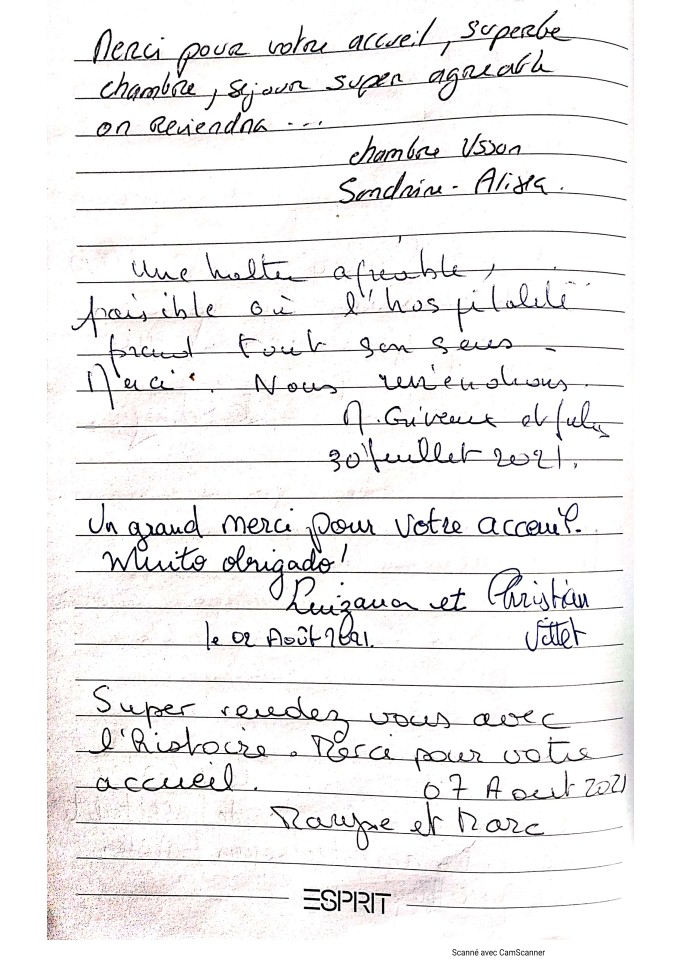 Merci pour votre accueil, superbe
chambre, séjour super agreable
on Reviendra ...
chambre Usson
Sandrine - Alissa.
Une halte agréable,
paisible où l'hospitalité
prend tout son sens.
Merci. Nous reviendrons.
et Jules
30 Juillet 2021.
Un grand merci pour votre accueil.
Muito obrigado!
Luizana et Christian
le 02 Août 2021. Vittet
Super rendez vous avec
l'histoire. Merci pour votre
accueil. 07 Aout 2021
et Marc
ESPRIT
Scanné avec CamScanner